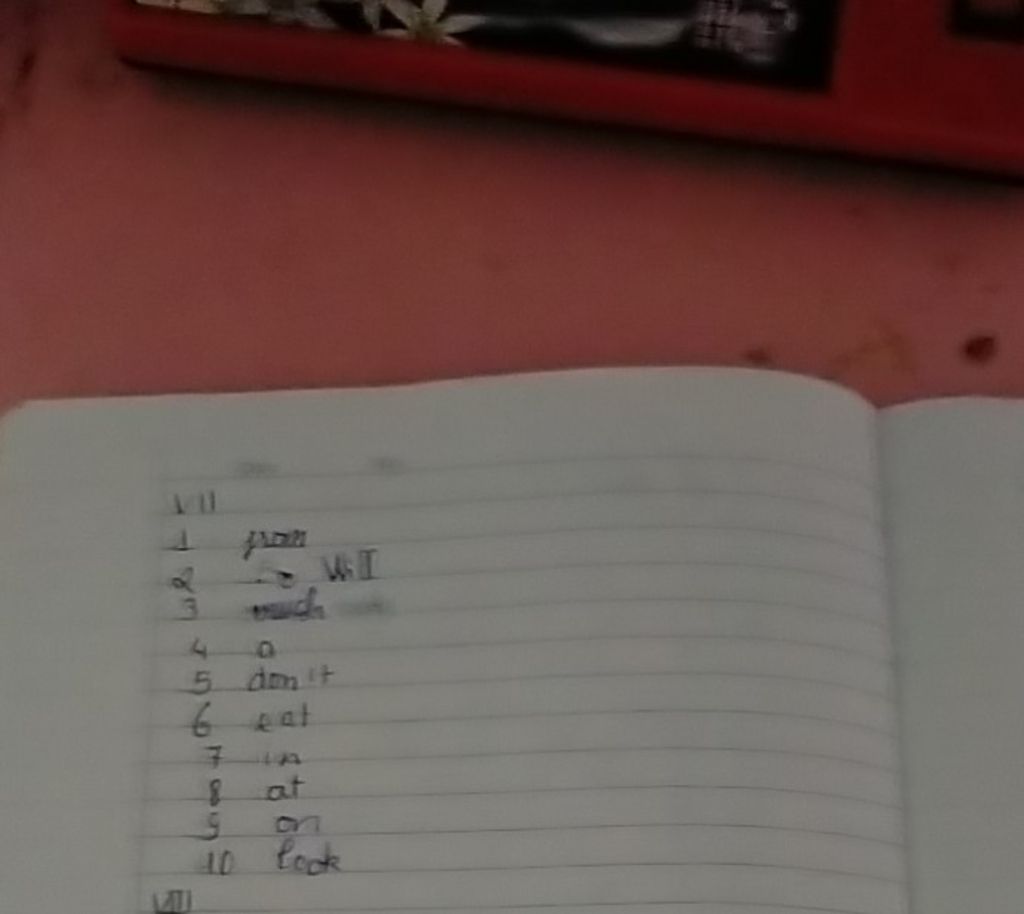 VII
1 from
2 Will
3 much
4 a
5 don't
6 eat
7 in
8 at
9 on
10 look
VIII